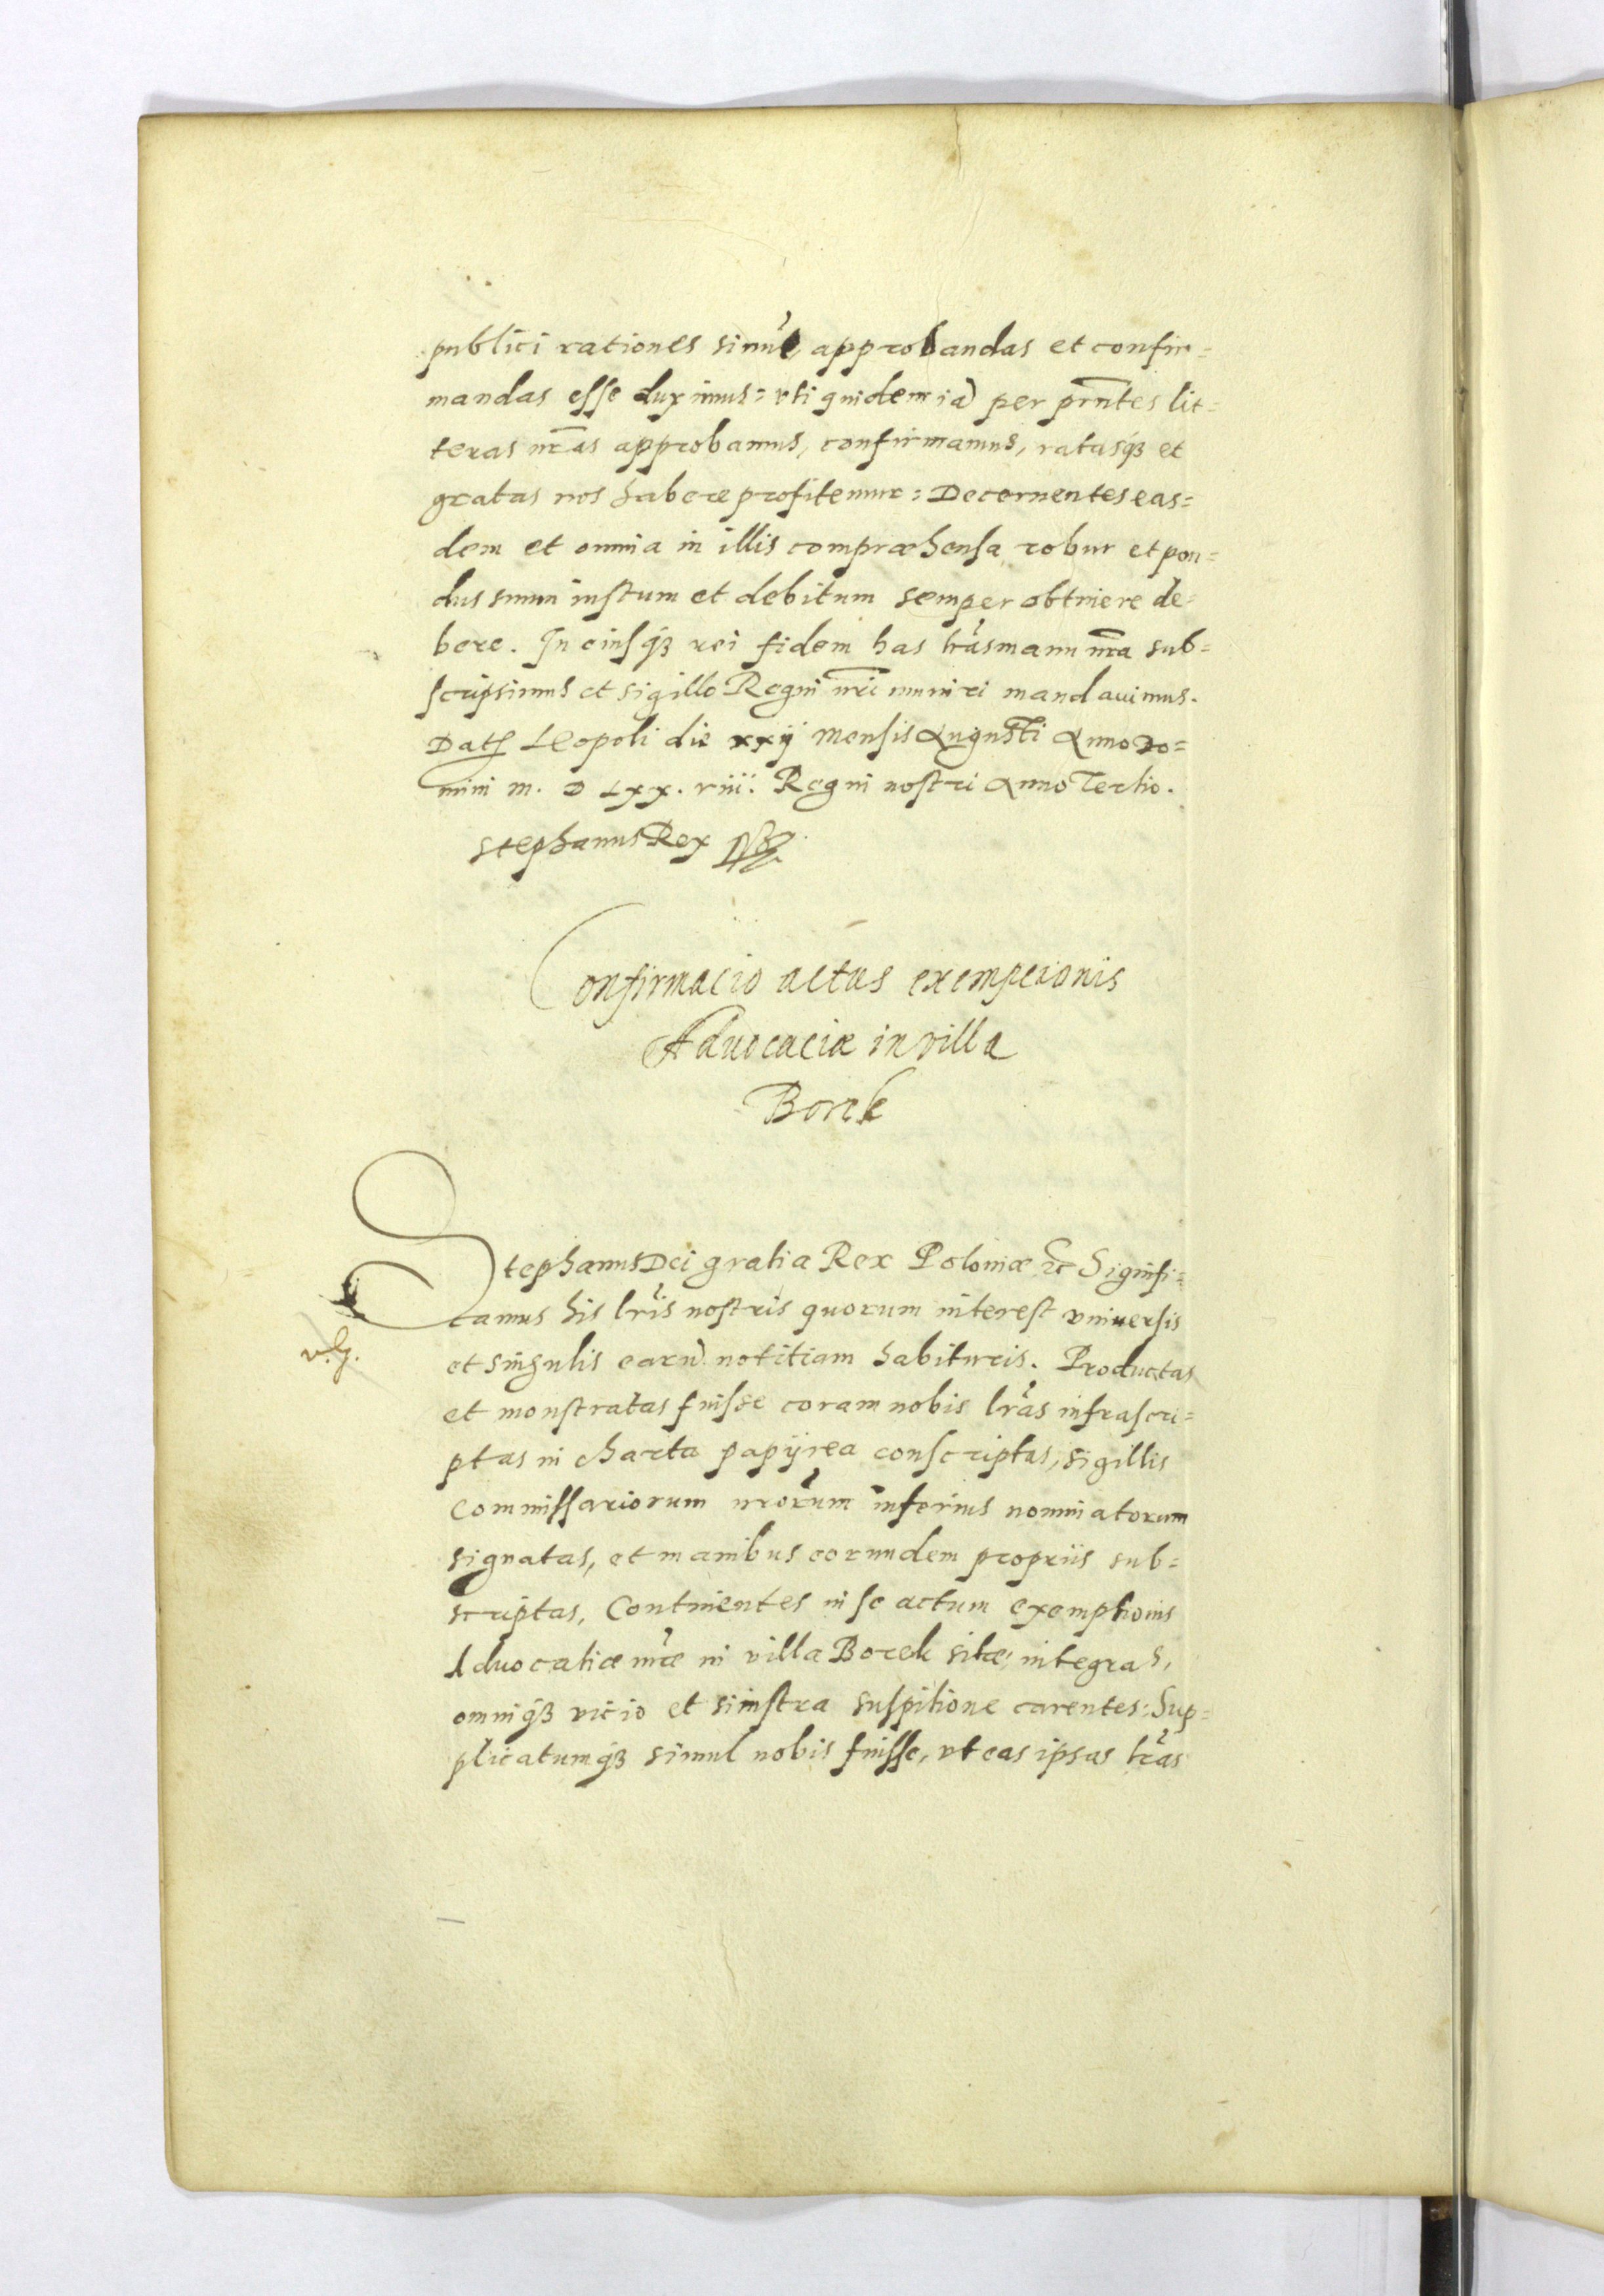 publici rationes sinūt, approbandas et confir=
mandas esse duximus: vti quidem id per prn̄tes lit=
teras nr̄as approbamus, confirmamus, ratasq3 et
gratas nos habere profitemur: Decernentes eas=
dem et omnia in illis compræhensa robur et pon=
dus suum iustum et debitum semper obtinere de=
bere. In eiusq3 rei fidem has lr̄as manu nr̄a sub=
scripsimus et sigillo Regni nr̄i muniri mandauimus.
Dat Leopoli die xxij Mensis Augusti Anno Do=
mini M. D Lxx. viii. Regni nostri Anno Tertio.
Stephanus Rex
Confirmacio actus exempcionis
Aduocaciæ in villa
Borek
Stephanus Dei gratia Rex Poloniæ etc Signifi=
camus his lr̄is nostris quorum interest vniuersis
et singulis earū notitiam habituris. Productas
et monstratas fuisse coram nobis lr̄as infrascri=
ptas in charta papÿrea conscriptas, sigillis
Commissariorum nrorum inferius nominatorum
signatas, et manibus eorundem propriis sub=
scriptas, Continentes in se actum exemptionis
Aduocatiæ nr̄æ in villa Borek sitæ, integras,
omniq3 vicio et sinistra suspitione carentes: Sup=
plicatumq3 simul nobis fuisse, vt eas ipsas lr̄as